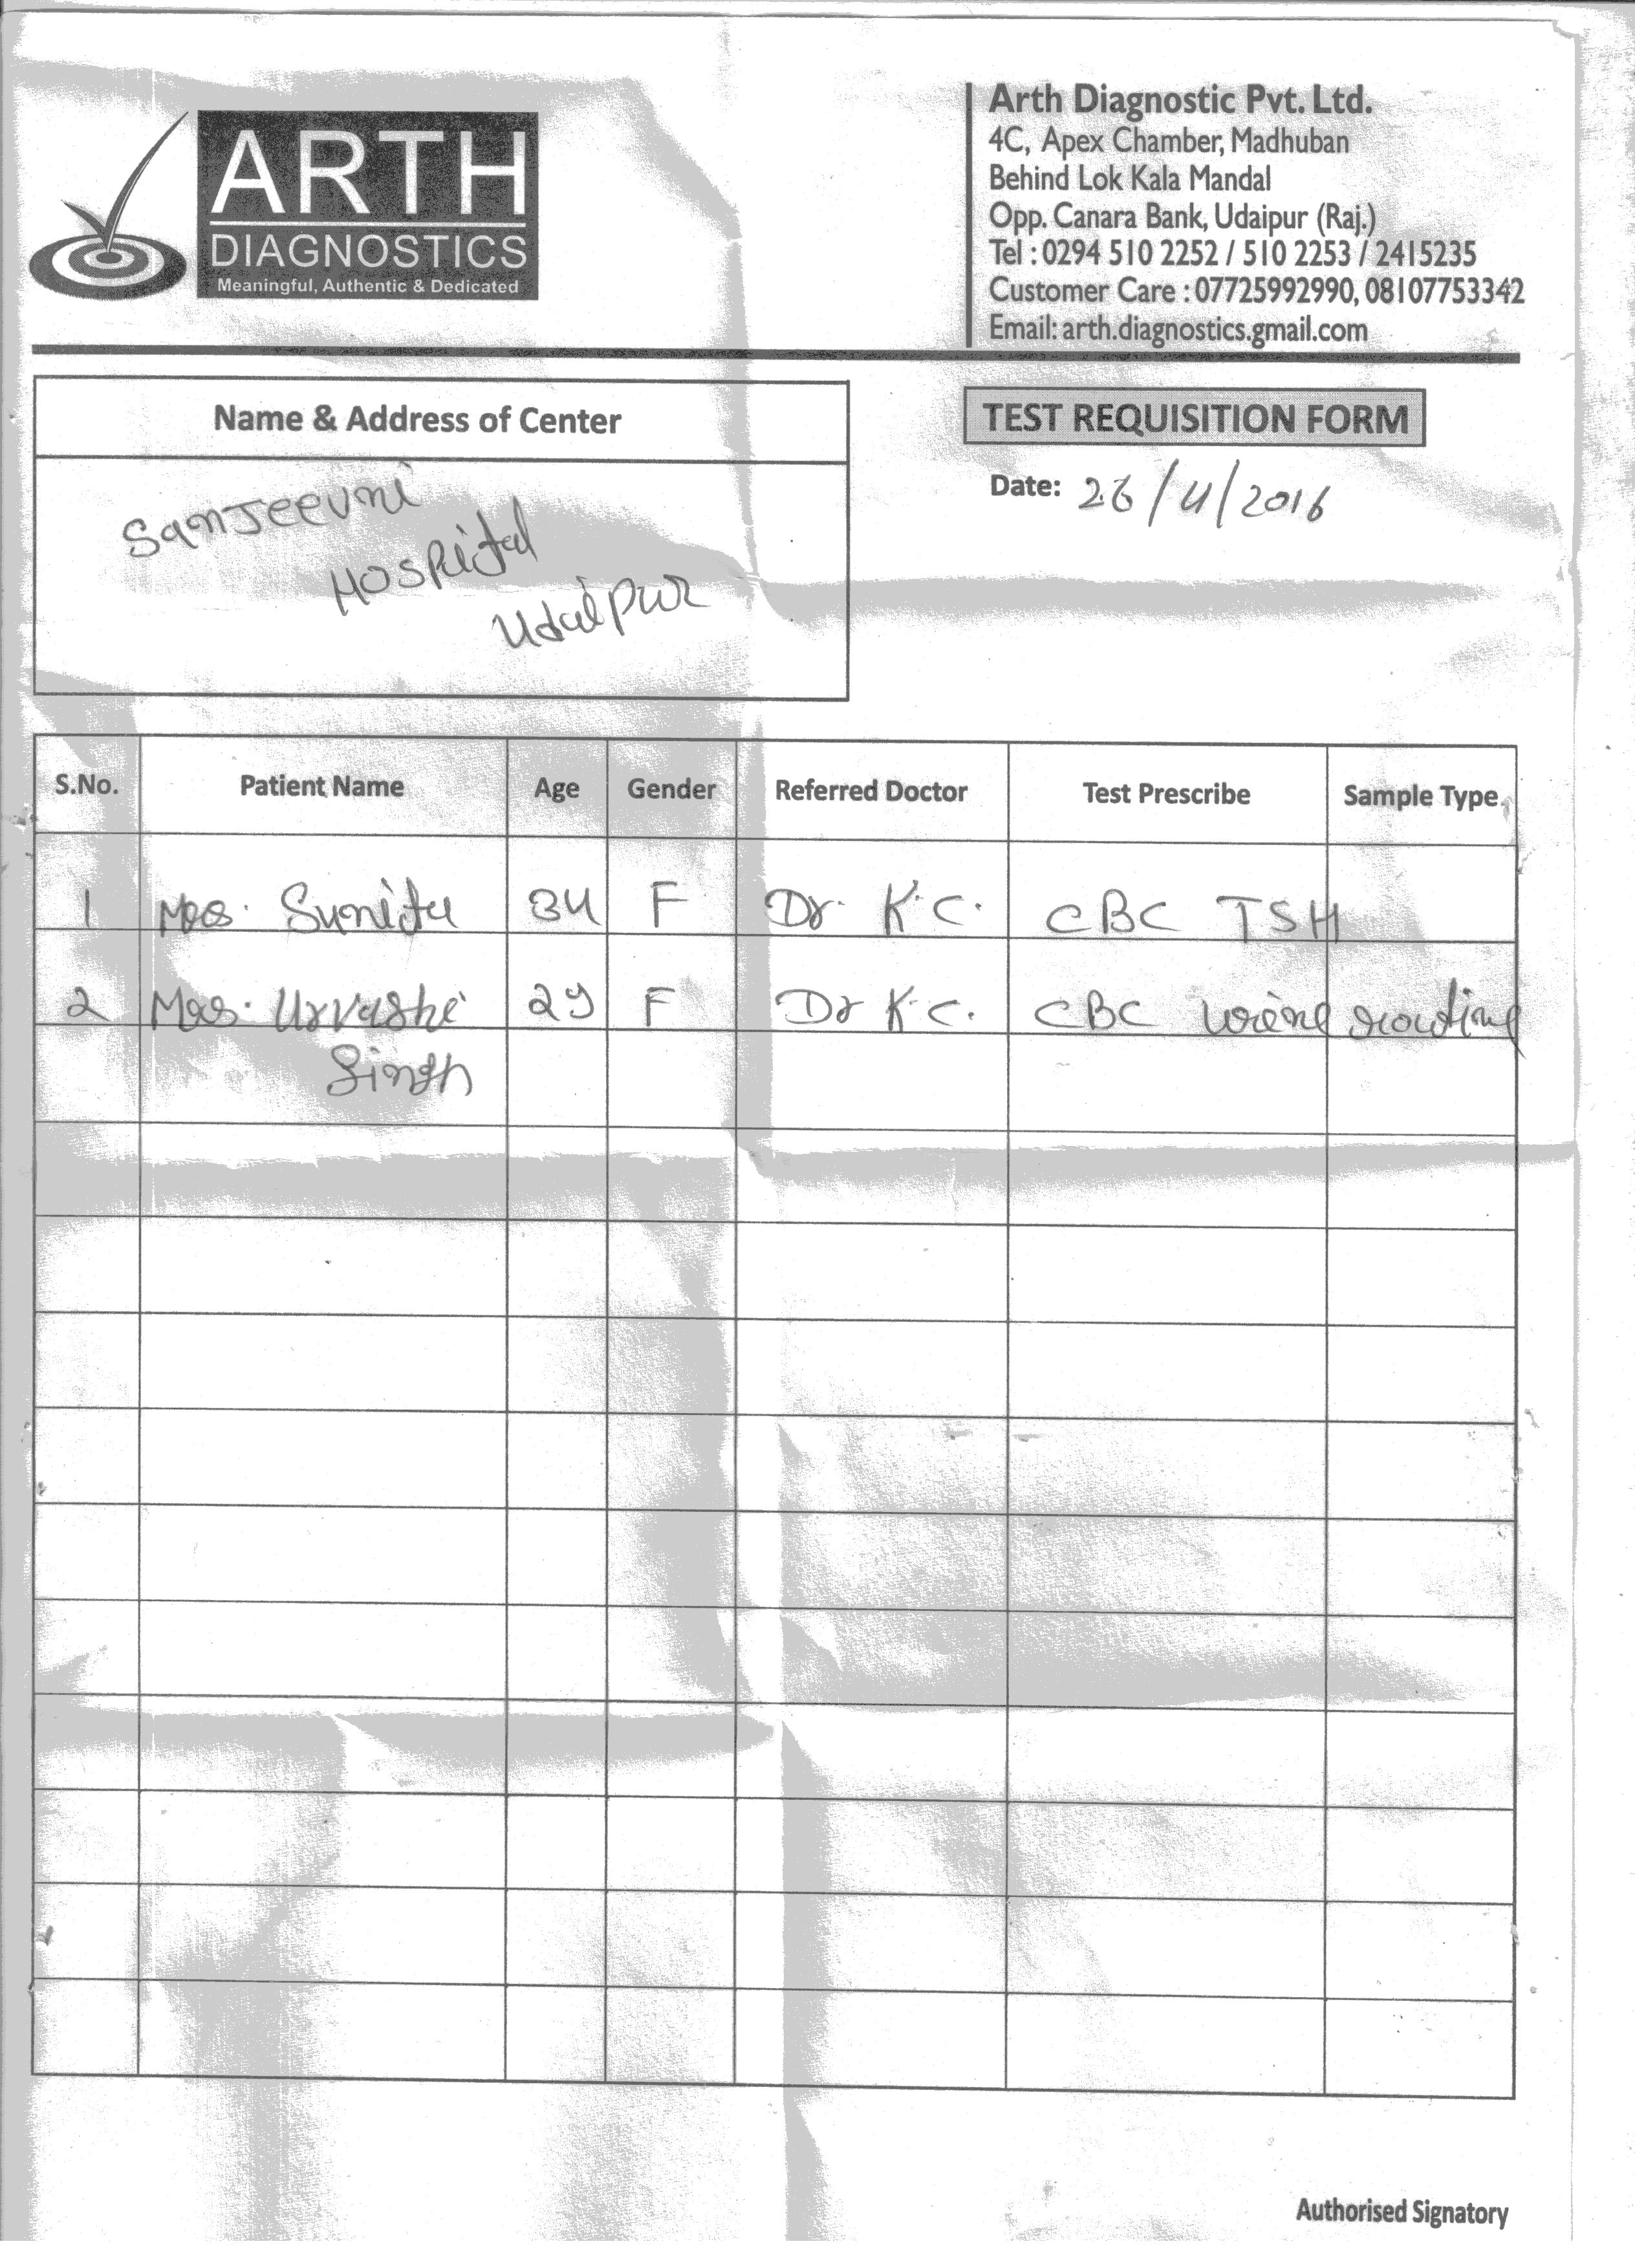 ARTH
DIAGNOSTICS
Meaningful, Authentic & Dedicated
Arth Diagnostic Pvt. Ltd.
4C, Apex Chamber, Madhuban
Behind Lok Kala Mandal
Opp. Canara Bank, Udaipur (Raj.)
Tel : 0294 510 2252 / 510 2253 / 2415235
Customer Care : 07725992990, 08107753342
Email: arth.diagnostics.gmail.com
Name & Address of Center
SanJeevni
Hospital
Udaipur
TEST REQUISITION FORM
Date: 26/11/2016
S.No. Patient Name Age Gender Referred Doctor Test Prescribe Sample Type
1 Mrs. Sunita 34 F Dr. K.C. CBC TSH
2 Mrs. Urvashi 29 F Dr K.C. CBC urine routine
Singh
Authorised Signatory